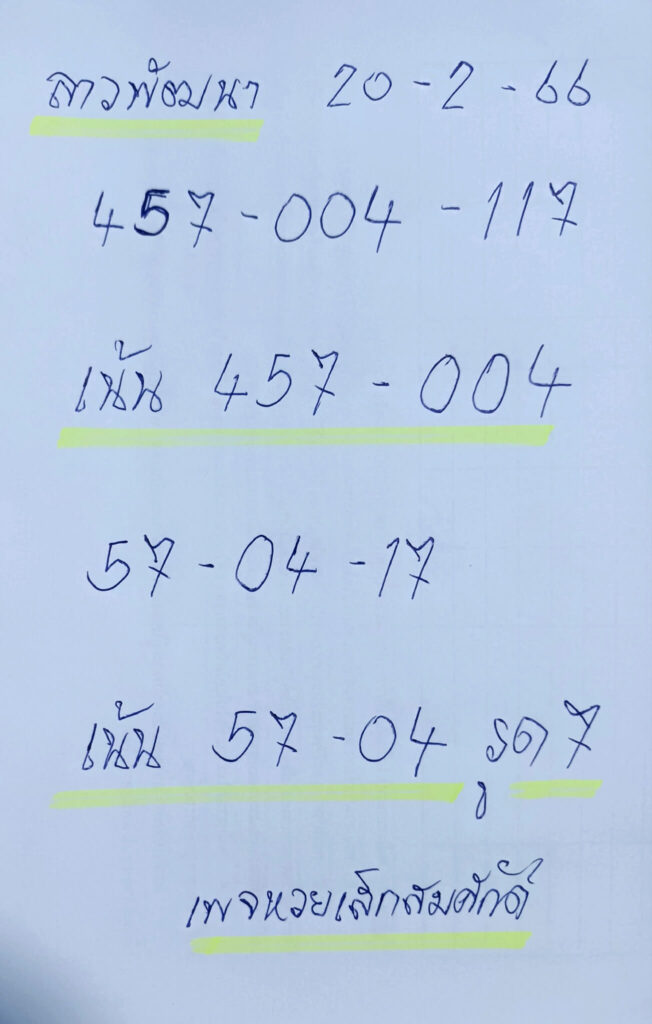 ลาวพัฒนา 20-2-66
457-004-117
เน้น 457-004
57-04-17
เน้น 57-04 รูด 7
เพจหวยเล็กสมศักดิ์